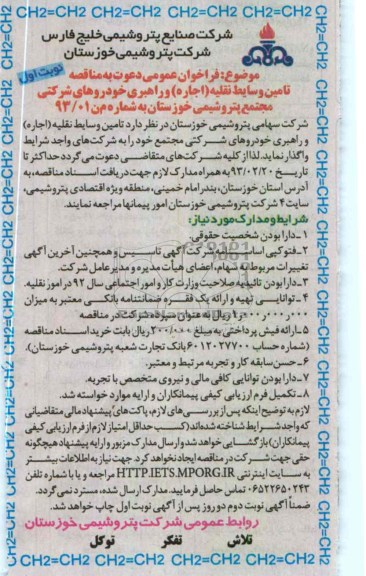 CH2=CH2 CH2=CH2 CH2=CH2 CH2=CH2 CH2=CH2
شرکت صنایع پتروشیمی خلیج فارس
شرکت پتروشیمی خوزستان
نوبت اول
موضوع: فراخوان عمومی دعوت به مناقصه
تامین وسایط نقلیه (اجاره) و راهبری خودروهای شرکتی
مجتمع پتروشیمی خوزستان به شماره م‌ن ۹۳/۰۱
شرکت سهامی پتروشیمی خوزستان در نظر دارد تامین وسایط نقلیه (اجاره)
و راهبری خودروهای شرکتی مجتمع خود را به شرکت‌های واجد شرایط
واگذار نماید. لذا از کلیه شرکت‌های متقاضی دعوت می‌گردد حداکثر تا
تاریخ ۹۳/۰۲/۲۰ به همراه مدارک لازم جهت دریافت اسناد مناقصه، به
آدرس استان خوزستان، بندر امام خمینی، منطقه ویژه اقتصادی پتروشیمی،
سایت ۴ شرکت پتروشیمی خوزستان امور پیمانها مراجعه نمایند.
شرایط و مدارک مورد نیاز:
۱- دارا بودن شخصیت حقوقی.
۲- فتوکپی اساسنامه شرکت، آگهی تاسیس و همچنین آخرین آگهی
تغییرات مربوط به سهام، اعضای هیأت مدیره و مدیر عامل شرکت.
۳- دارا بودن تائیدیه صلاحیت وزارت کار و امور اجتماعی سال ۹۲ در امور نقلیه.
۴- توانایی تهیه و ارائه یک فقره ضمانتنامه بانکی معتبر به میزان
ریال به عنوان سپرده شرکت در مناقصه
۵- ارائه فیش پرداختی به مبلغ ۲۰۰/۰۰۰ ریال بابت خرید اسناد مناقصه
(شماره حساب ۶۰۱۲۰۲۷۷۰۰ بانک تجارت شعبه پتروشیمی خوزستان).
۶- حسن سابقه کار و تجربه مرتبط و معتبر.
۷- دارا بودن توانایی کافی مالی و نیروی متخصص با تجربه.
۸- تکمیل فرم ارزیابی کیفی پیمانکاران و ارایه موارد خواسته شد.
لازم به توضیح اینکه پس از بررسی‌های لازم، پاکت‌های پیشنهاد مالی متقاضیانی
که واجد شرایط شناخته شده‌اند (کسب حداقل امتیاز لازم از فرم ارزیابی کیفی
پیمانکاران) بازگشایی خواهد شد و ارسال مدارک مزبور و ارایه پیشنهاد هیچگونه
حقی جهت شرکت در مناقصه ایجاد نخواهد کرد. جهت نیاز به اطلاعات بیشتر
به سایت اینترنتی HTTP.IETS.MPORG.IR مراجعه و یا با شماره تلفن
۰۶۵۲۲۶۵۰۲۴۳ تماس حاصل فرمایید. مدارک ارسال شده، مسترد نمی‌گردد.
ضمناً آگهی نوبت دوم دو روز پس از آگهی نوبت اول چاپ خواهد شد.
روابط عمومی شرکت پتروشیمی خوزستان
تلاش تفکر توکل
CH2=CH2 CH2=CH2 CH2=CH2 CH2=CH2 CH2=CH2